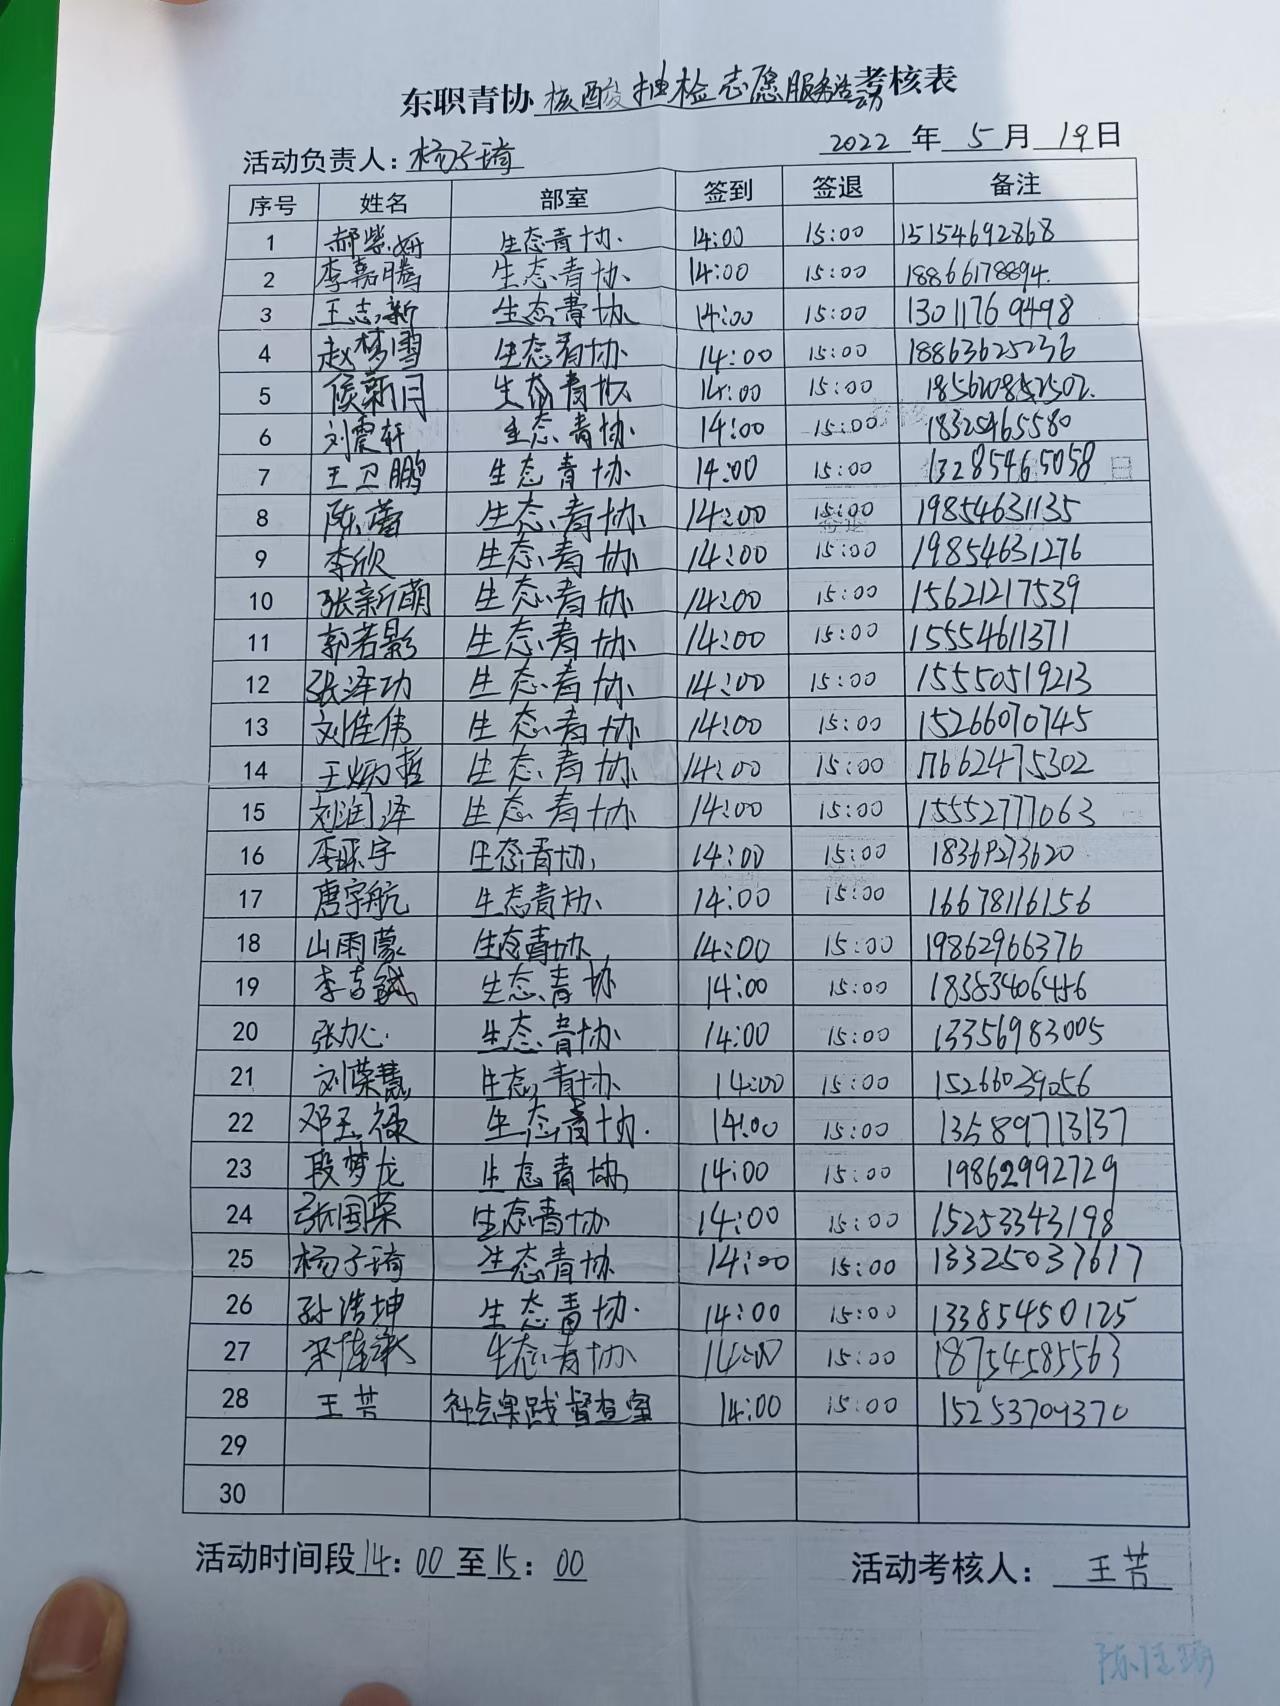 东职青协核酸抽检志愿服务活动考核表
活动负责人：杨子琦 2022年5月19日
序号 姓名 部室 签到 签退 备注
1 郝紫妍 生态青协 14:00 15:00 15154692868
2 李嘉腾 生态青协 14:00 15:00 18866178894
3 王志新 生态青协 14:00 15:00 13011769498
4 赵梦雪 生态青协 14:00 15:00 18863625236
5 侯新月 生态青协 14:00 15:00 185620852502
6 刘震轩 生态青协 14:00 15:00 18325465580
7 王卫鹏 生态青协 14:00 15:00 13285465058
8 陈蕾 生态青协 14:00 15:00 19854631135
9 李欣 生态青协 14:00 15:00 19854631276
10 张新萌 生态青协 14:00 15:00 15621217539
11 郭若影 生态青协 14:00 15:00 15554611371
12 张泽功 生态青协 14:00 15:00 15550519213
13 刘佳伟 生态青协 14:00 15:00 15266070745
14 王炳哲 生态青协 14:00 15:00 17662475302
15 刘润泽 生态青协 14:00 15:00 15552777063
16 生态青协 14:00 15:00 18369273620
17 唐宇航 生态青协 14:00 15:00 16678116156
18 山雨蒙 生态青协 14:00 15:00 19862966376
19 生态青协 14:00 15:00 18353406456
20 张力心 生态青协 14:00 15:00 13356983005
21 刘荣慧 生态青协 14:00 15:00 15266039056
22 邓玉禄 生态青协 14:00 15:00 13589713137
23 段梦龙 生态青协 14:00 15:00 19862992729
24 张国荣 生态青协 14:00 15:00 15253343198
25 杨子琦 生态青协 14:00 15:00 13325037617
26 孙浩坤 生态青协 14:00 15:00 13385450125
27 生态青协 14:00 15:00 18754585563
28 王芳 社会实践督查室 14:00 15:00 15253709370
29
30
活动时间段14：00至15：00 活动考核人：王芳